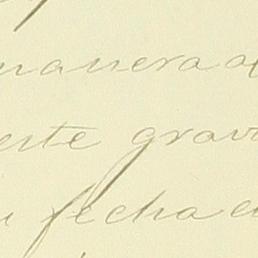 manera
este grava
fecha